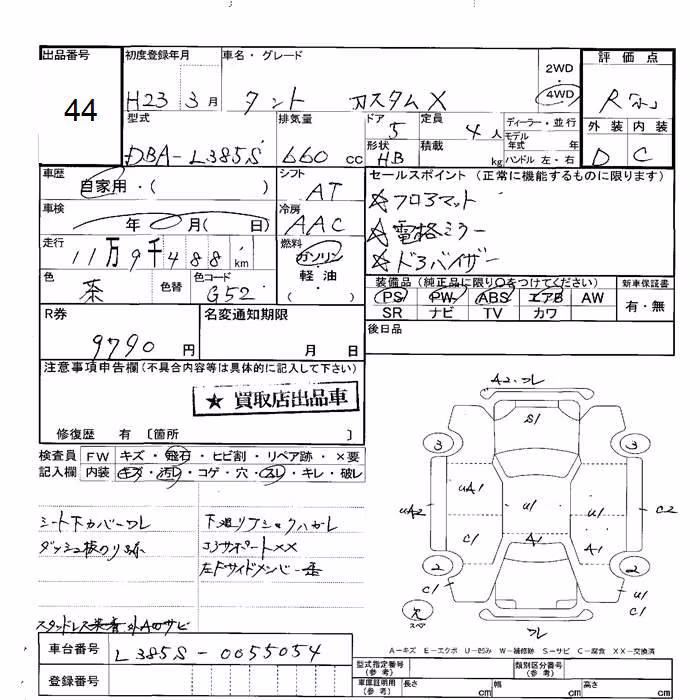 出品番号
44
初度登録年月
H23 3月
車名・グレード
タント カスタムX
2WD
・
4WD
評価点
R
型式
DBA-L385S
排気量
660 cc
ドア
5
定員
4人
ディーラー・並行
モデル
年式 年
形状
HB
積載
kg
ハンドル 左・右
外装 内装
D C
車歴
自家用・( )
シフト
AT
セールスポイント (正常に機能するものに限ります)
☆フロアマット
☆電格ミラー
☆ドアバイザー
車検
年 月( 日)
冷房
AAC
走行
11万9千488km
燃料
ガソリン
・
軽油
・
( )
色
茶
色替
色コード
G52
装備品(純正品に限り○をつけてください)
PS PW ABS エアB AW
SR ナビ TV カワ
新車保証書
有・無
R券
9790円
名変通知期限
月 日
後日品
注意事項申告欄(不具合内容等は具体的に記入して下さい)
★買取店出品車
修復歴 有 〔箇所 〕
検査員
記入欄
FW キズ・飛石・ヒビ割・リペア跡・×要
内装 キズ・汚レ・コゲ・穴・スレ・キレ・破レ
シート下カバーワレ
ダッシュ板のり跡
コアサポートXX
車台番号
L385S-0055054
登録番号
A2.ワレ
S1
3
3
UA2
UA1
U1
U1
C2
C1
A1
A1
2
2
C1
U1
C1
スペア
ワレ
A-キズ E-エクボ U-凹み W-補修跡 S-サビ C-腐食 XX-交換済
型式指定番号
(参考)
類別区分番号
(参考)
車庫証明用
(参考)
長さ cm
幅 cm
高さ cm